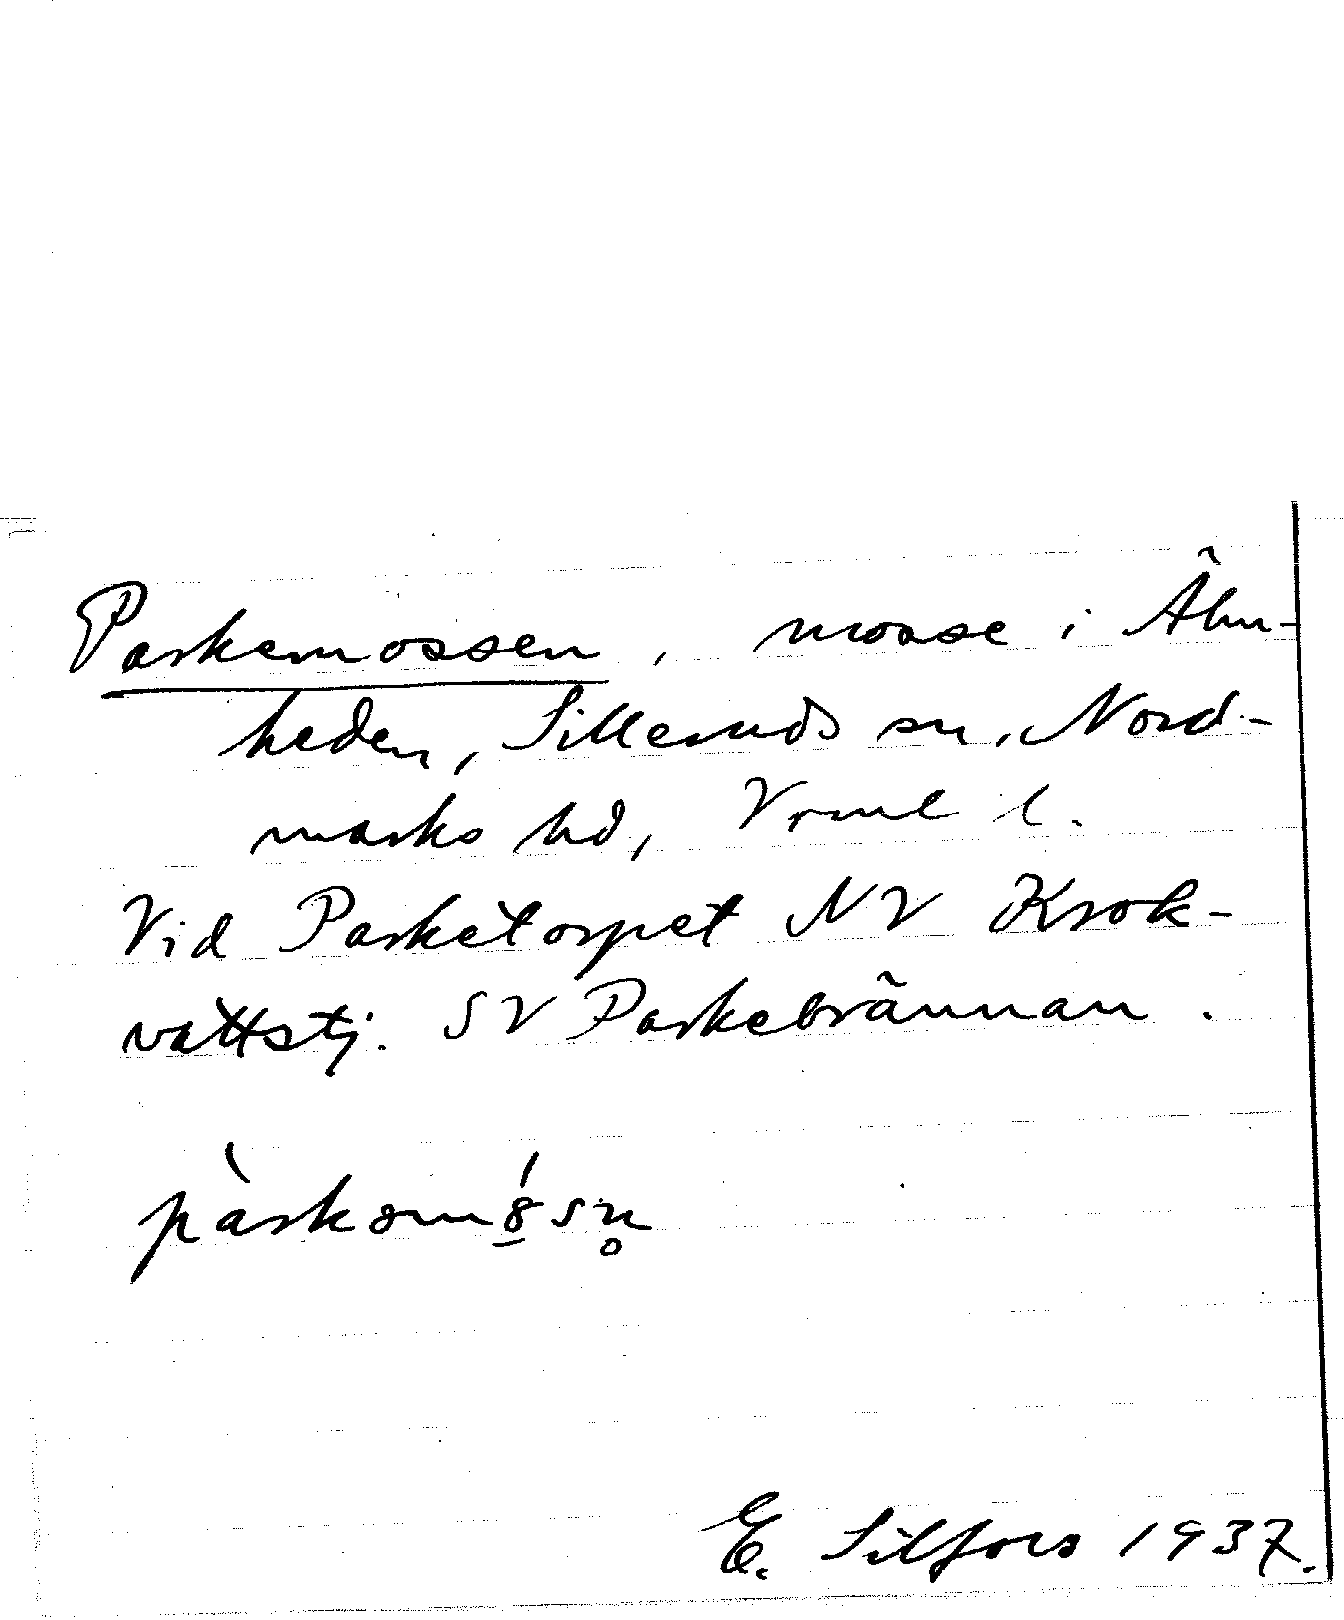 Parkemossen, mosse i Älm-
heden, Silleruds sn, Nord-
marks hd, Vrml l.
Vid Parketorpet NV Krok-
vattstj. SV Parkebrännan.
pàrkəmó̱sn̥
E. Silfors 1937.